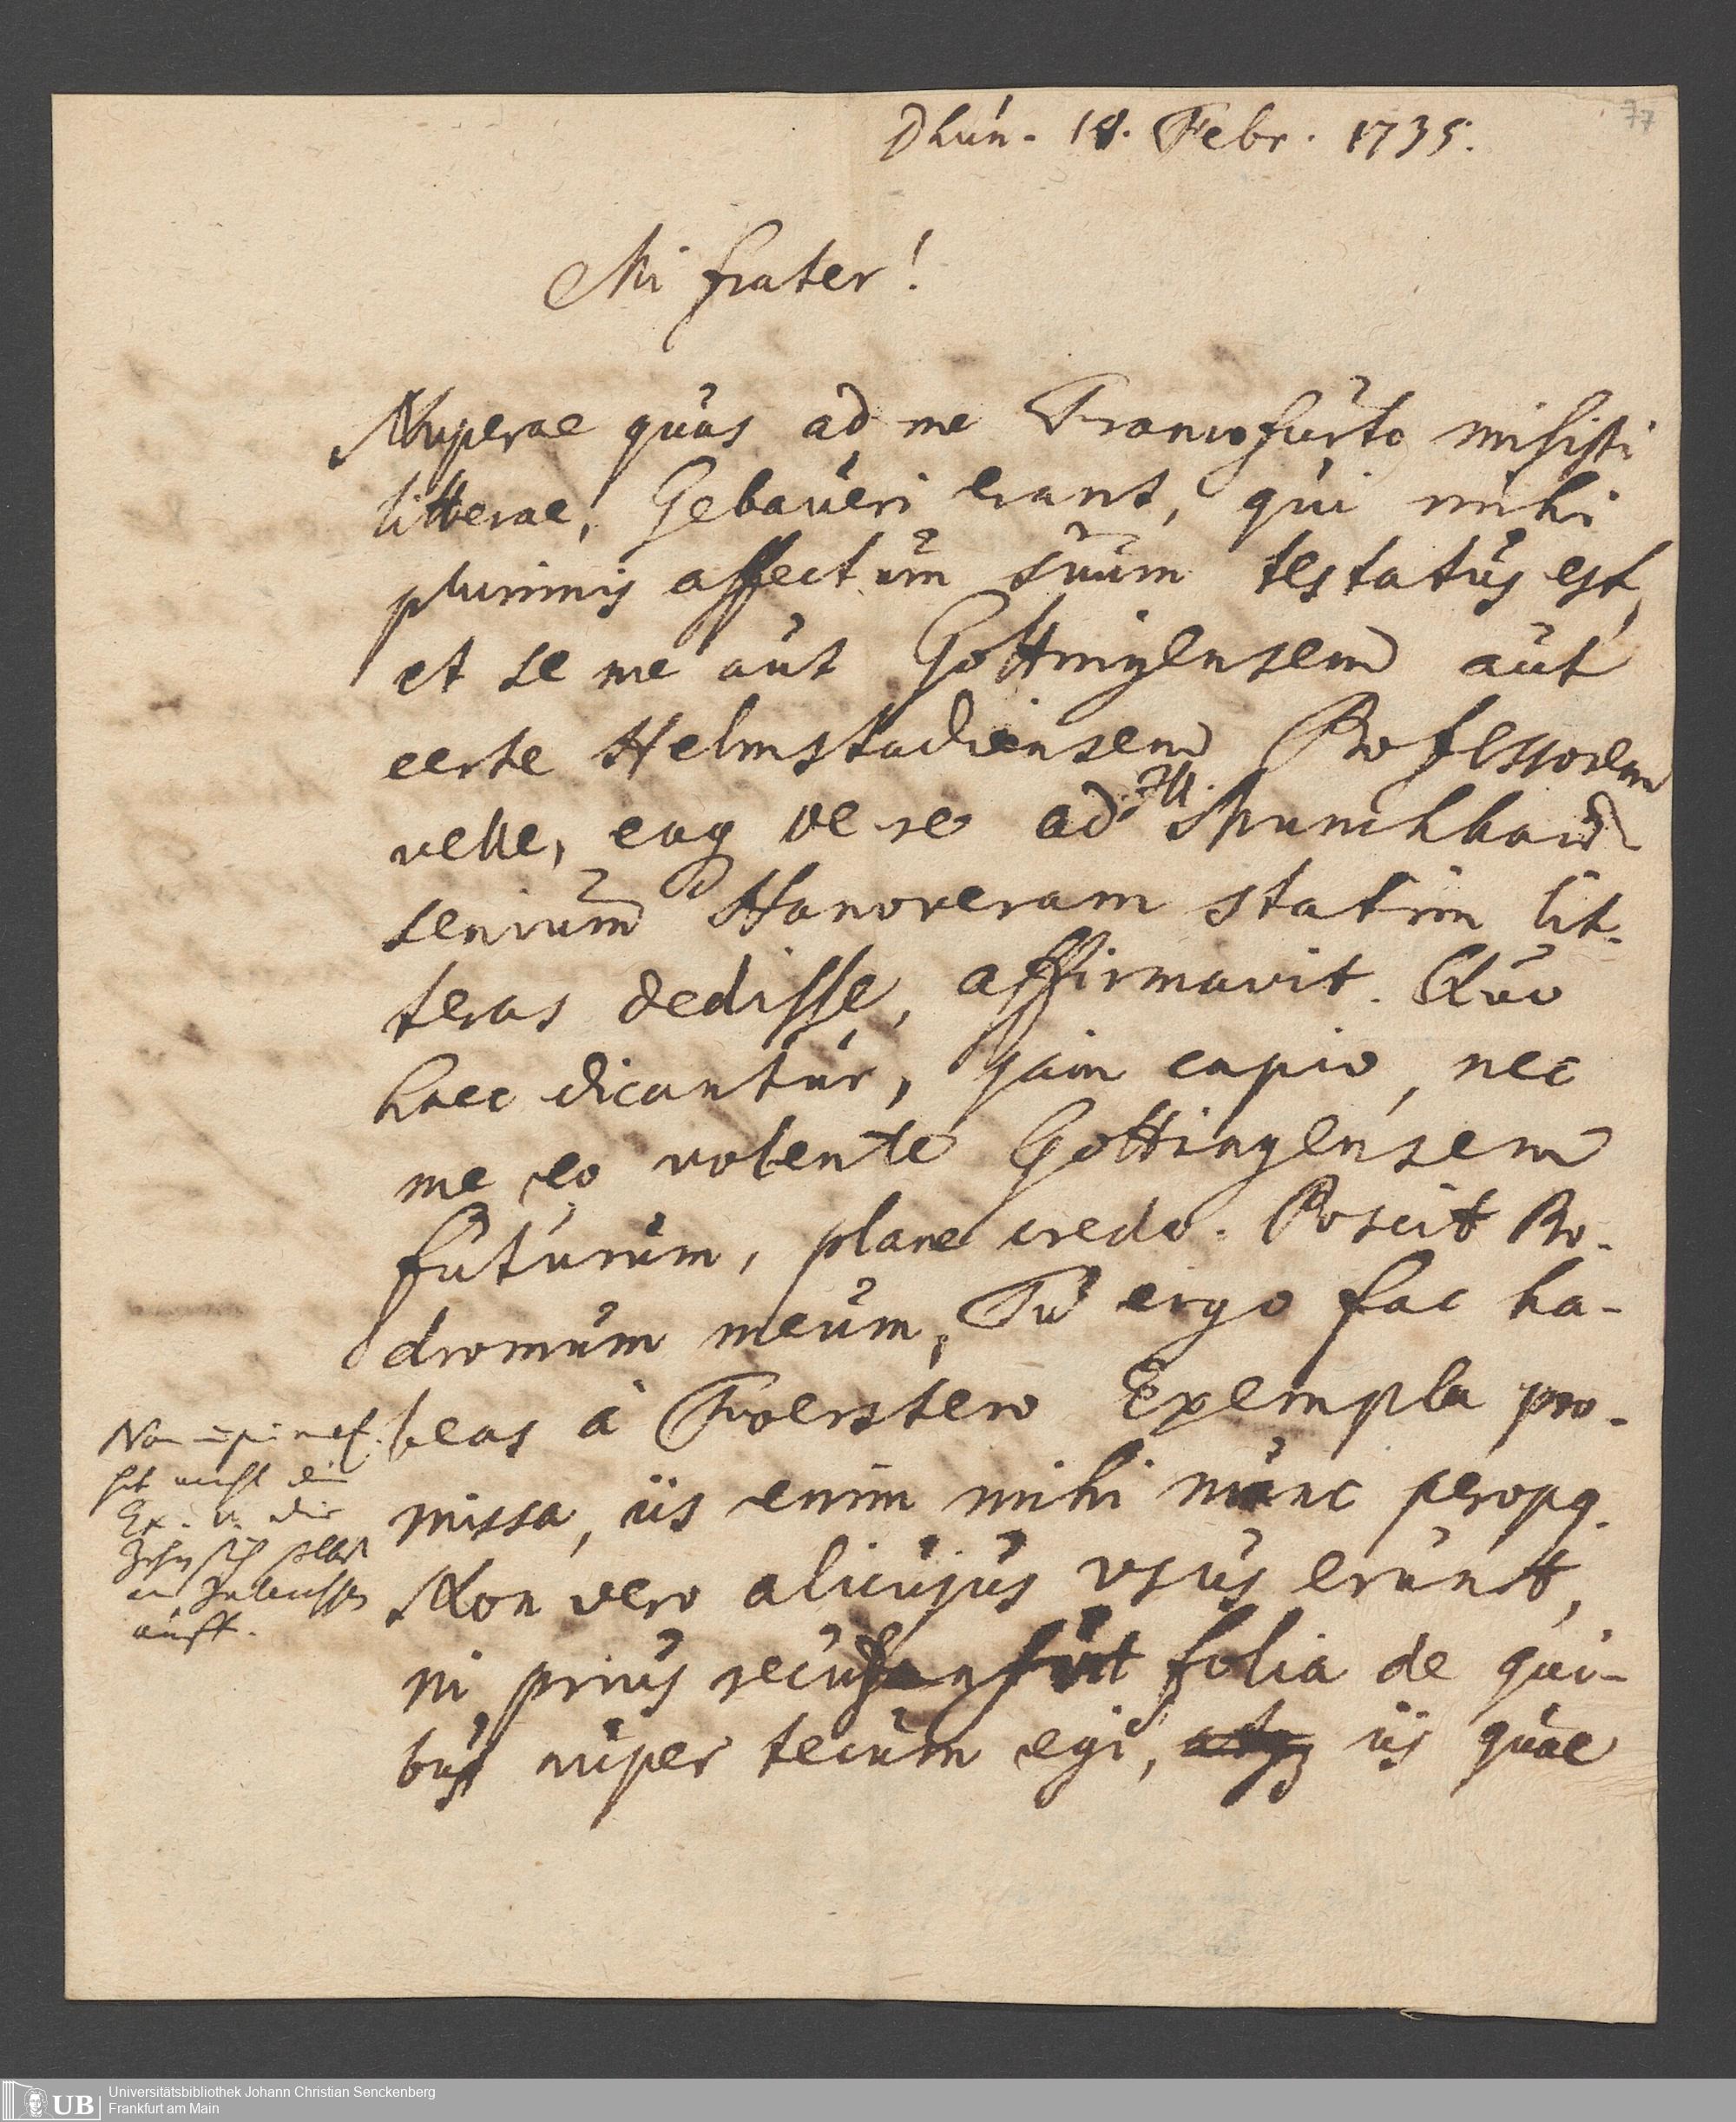 77
Dhún. 18. Febr. 1735.
Mi frater!
Nuperae quas ad me Francofurto misisti
litterae, Gebaueri erant, qui mihi
plurimis affectum suum testatus est,
et se me aut Gottingensem aut
certe Helmstadiensem Professorem
velle, eaq de re ad Ill.
senium Hanoveram statim lit-
teras dedisse, affirmavit. Quo
haec dicantur, jam capio, nec
me eo volente Gottingensem
futurum, plane credo. Poscit Pro-
dromum meum, Tu ergo fac ha-
beas à Foerstero Exempla pro-
missa, iis enim mihi nunc peropq.
Non vero alicujus usus erunt,
ni prius folia de qui-
bus nuper tecum egi, atq iis quae
nicht
Ex.
Universitätsbibliothek Johann Christian Senckenberg
Frankfurt am Main
UB